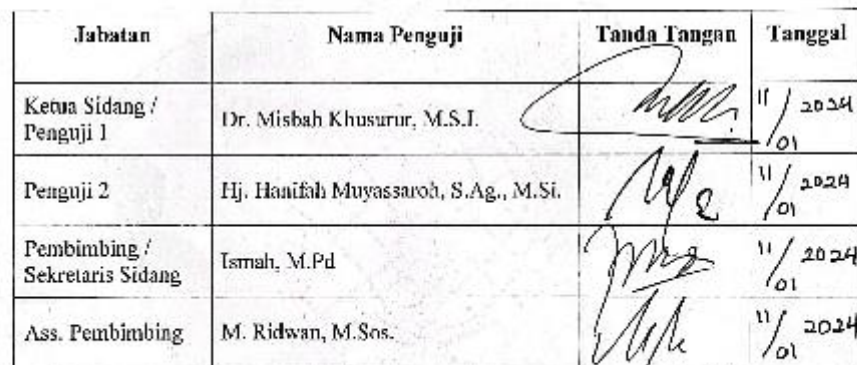 Jabatan Nama Penguji Tanda Tangan Tanggal
Ketua Sidang /
Penguji 1 Dr. Misbah Khusurur, M.S.I. 11/01 2024
Penguji 2 Hj. Hanifah Muyassaroh, S.Ag., M.Si. 11/01 2024
Pembimbing /
Sekretaris Sidang Ismah, M.Pd 11/01 2024
Ass. Pembimbing M. Ridwan, M.Sos. 11/01 2024